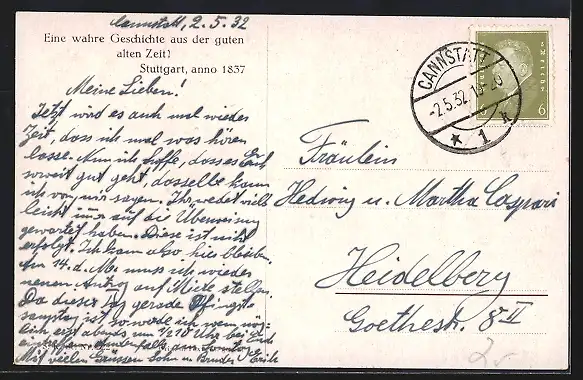 Cannstatt, 2.5.32
Eine wahre Geschichte aus der guten
alten Zeit!
Stuttgart, anno 1837
Meine Lieben!
Jetzt wird es auch mal wieder
Zeit, dass ich mal was hören
lasse. Nun ich hoffe, dass es Euch
soweit gut geht, dasselbe kann
ich von mir sagen. Ihr werdet viel-
leicht immer auf die Überweisung
gewartet haben. Diese ist nicht
erfolgt. Ich kann also hier bleiben.
Am 14. d. M. muss ich wieder
neuen Antrag auf Miete stellen.
Da dieser Tag gerade Pfingst-
samstag ist, so werde ich wenn mög-
lich erst abends um 12 10 Uhr bei Euch
Mit vielen Grüssen Sohn u. Bruder Erich
CANNSTATT
-2.5.32.19-20
* 1 k
6
Fräulein
Hedwig u. Martha Caspari
Heidelberg
Goethestr. 8 II